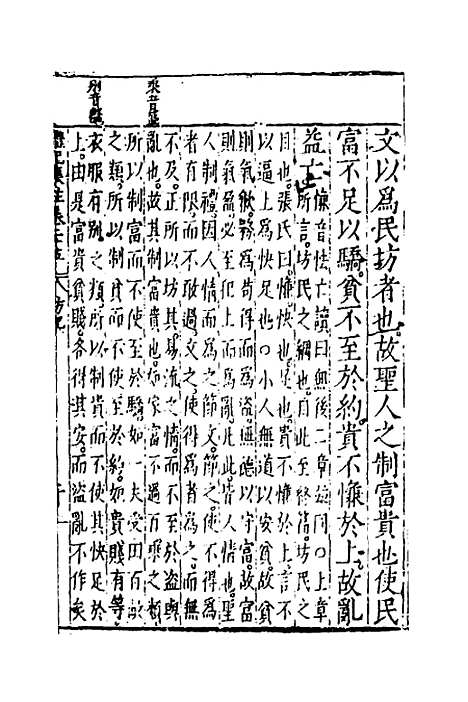 乘去聲
別音鼈
文以爲民坊者也故聖人之制富貴也使民
富不足以驕貧不至於約貴不慊於上故亂
益亡慊音怯亡讀曰無後二章並同○上章
所言坊民之綱也自此至終篇坊民之
目也張氏曰慊快也○貴不慊於上言不
以逼上爲快足也○小人無道以安貧故貧
則氣歉爲苟得而爲盜無德以守富故富
則氣盈必至犯上而爲亂此皆人情也聖
人制禮因人情而爲之節文節之使不得爲
者有限而不敢過文之使得爲者有所而無
不及正所以坊其易流之情而不至於盜與
亂也故其制富貴也如家富不過百乘之類
所以制富而不使至於驕如一夫受田百畝
之類所以制貧而不使至於約如貴賤有等
衣服有別之類所以制貴而不使其快足於
上由是富貴貧賤各得其安而盜亂不作矣
坊記